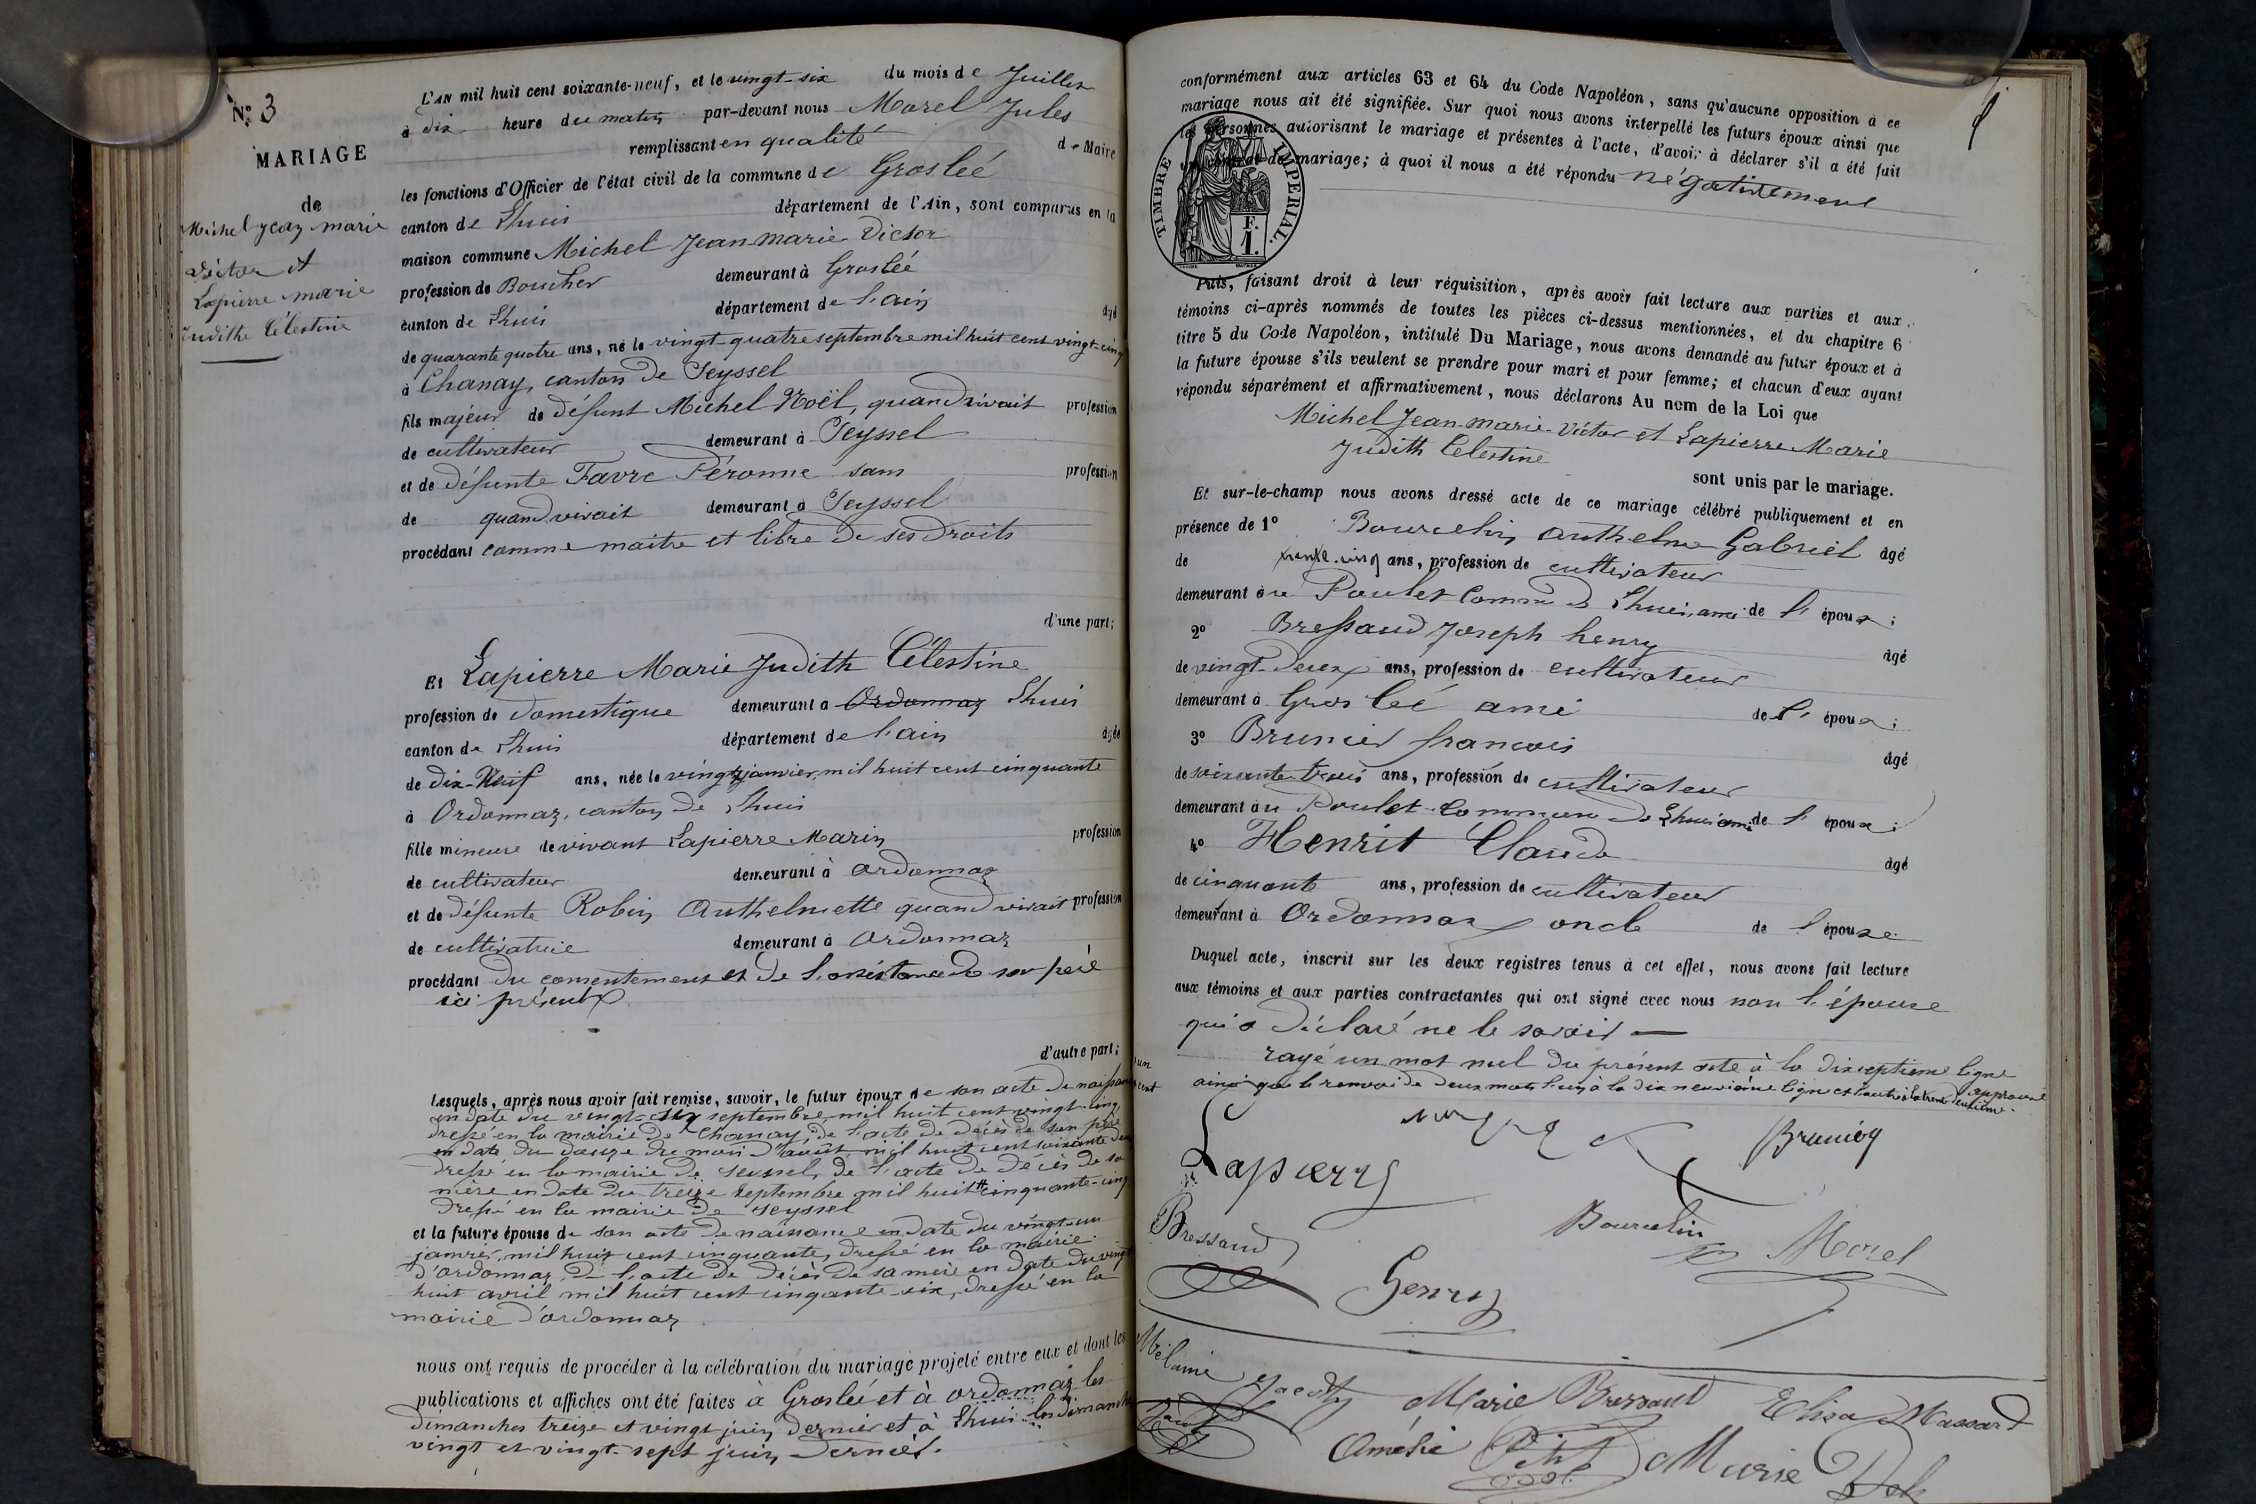 N.º 3
MARIAGE
de
Michel Jean marie
Victor et
Lapierre marie
Judithe Célestine
L'AN mil huit cent soixante-neuf, et le vingt-six du mois de Juillet
à dix heure du matin par-devant nous Morel Jules
remplissant en qualité de Maire
les fonctions d'Officier de l'état civil de la commune de Groslée
canton de Lhuis département de l'Ain, sont comparus en la
maison commune Michel Jean marie Victor
profession de Boucher demeurant à Groslée
canton de Lhuis département de l'ain âgé
de quarante quatre ans, né le vingt-quatre septembre mil huit cent vingt-cinq
à Chanay, canton de Seyssel
fils majeur de défunt Michel Noël, quand vivait profession
de cultivateur demeurant à Seyssel
et de défunte Favre Péronne sans profession
de quand vivait demeurant à Seyssel
procédant comme maître et libre de ses droits
d'une part;
Et Lapierre Marie Judith Célestine
profession de domestique demeurant à Ordonnaz Lhuis
canton de Lhuis département de l'ain âgée
de dix-Neuf ans, née le vingt janvier mil huit cent cinquante
à Ordonnaz, canton de Lhuis
fille mineure de vivant Lapierre Marin profession
de cultivateur demeurant à ordonnaz
et de défunte Robin Anthelmette quand vivait profession
de cultivatrice demeurant à Ordonnaz
procédant du consentement et de l'assistance de son père
ici présent
d'autre part;
Lesquels, après nous avoir fait remise, savoir, le futur époux de son acte de naissance
en date du vingt-six septembre mil huit cent vingt-cinq
dressé en la mairie de Chanay, de l'acte de décès de son père
en date du douze du mois d'août mil huit cent soixante deux
dressé en la mairie de Seyssel, de l'acte de décès de sa
mère en date du treize septembre mil huit cinquante-cinq
dressé en la mairie de Seyssel
et la future épouse de son acte de naissance en date du vingt-un
janvier mil huit cent cinquante, dressé en la mairie
d'ordonnaz, de l'acte de décès de sa mère en date du vingt
huit avril mil huit cent cinquante-six, dressé en la
mairie d'ordonnaz
nous ont requis de procéder à la célébration du mariage projeté entre eux et dont les
publications et affiches ont été faites à Groslée et à ordonnaz les
dimanches treize et vingt juin dernier et à Lhuis les dimanches
vingt et vingt-sept juin dernier.
conformément aux articles 63 et 64 du Code Napoléon, sans qu'aucune opposition à ce
mariage nous ait été signifiée. Sur quoi nous avons interpellé les futurs époux ainsi que
les personnes autorisant le mariage et présentes à l'acte, d'avoir à déclarer s'il a été fait
un contrat de mariage; à quoi il nous a été répondu négativement
TIMBRE IMPERIAL.
F.
1.
Puis, faisant droit à leur réquisition, après avoir fait lecture aux parties et aux
témoins ci-après nommés de toutes les pièces ci-dessus mentionnées, et du chapitre 6
titre 5 du Code Napoléon, intitulé Du Mariage, nous avons demandé au futur époux et à
la future épouse s'ils veulent se prendre pour mari et pour femme; et chacun d'eux ayant
répondu séparément et affirmativement, nous déclarons Au nom de la Loi que
Michel Jean-marie-Victor et Lapierre Marie
Judith Célestine
sont unis par le mariage.
Et sur-le-champ nous avons dressé acte de ce mariage célébré publiquement et en
présence de 1º Bourcelin Anthelme Gabriel âgé
de trente-cinq ans, profession de cultivateur
demeurant au Poulet Commune de Lhuis, ami de l'époux;
2º Bressaud Joseph henry âgé
de vingt-deux ans, profession de cultivateur
demeurant à Groslée ami de l'époux;
3º Brunier françois âgé
de soixante-trois ans, profession de cultivateur
demeurant au Poulet-Commune de Lhuis ami de l'époux;
4º Henrit Claude âgé
de cinquante ans, profession de cultivateur
demeurant à Ordonnaz oncle de l'épouse
Duquel acte, inscrit sur les deux registres tenus à cet effet, nous avons fait lecture
aux témoins et aux parties contractantes qui ont signé avec nous non l'épouse
qui a déclaré ne le savoir
rayé un mot nul du présent acte à la dixseptieme ligne
ainsi que le renvoi de deux mots à la dix neuvième ligne approuvé
Brunier
Lapierre
Bressaud
Bourcelin
Morel
Henry
Mélanie
Marie Bressaud
Elisa Massard
Amélie Petit
Marie